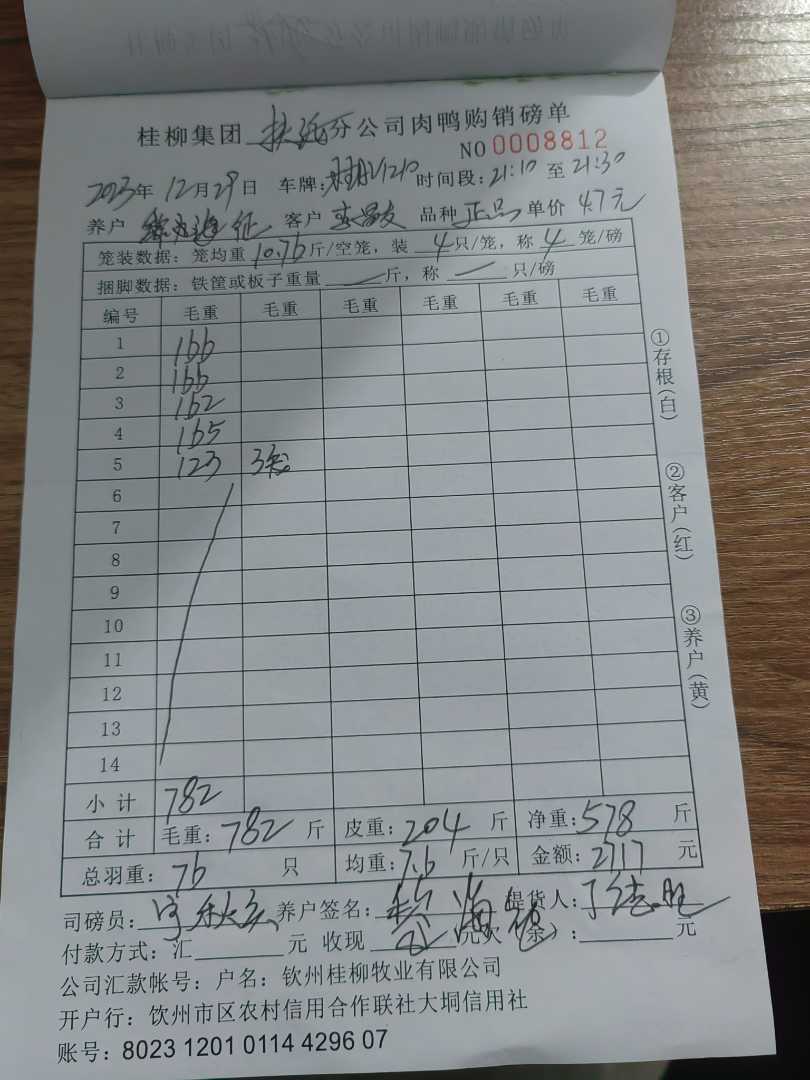 桂柳集团 扶绥分公司肉鸭购销磅单
NO 0008812
2023年 12月29日 车牌: 时间段:21:10 至 21:30
养户 客户 品种 正品 单价 4.7元
笼装数据：笼均重 10.76 斤/空笼，装 4 只/笼，称 4 笼/磅
捆脚数据：铁筐或板子重量 — 斤，称 — 只/磅
编号 毛重 毛重 毛重 毛重 毛重 毛重
1 166
2 166
3 162
4 165
5 123
6
7
8
9
10
11
12
13
14
小计 782
合计 毛重：782 斤 皮重：204 斤 净重：578 斤
总羽重：76 只 均重：7.6 斤/只 金额：2717 元
司磅员： 养户签名： 提货人：
付款方式：汇 元 收现 元欠（余）： 元
公司汇款帐号：户名：钦州桂柳牧业有限公司
开户行：钦州市区农村信用合作联社大垌信用社
账号：8023 1201 0114 4296 07
①存根（白）
②客户（红）
③养户（黄）